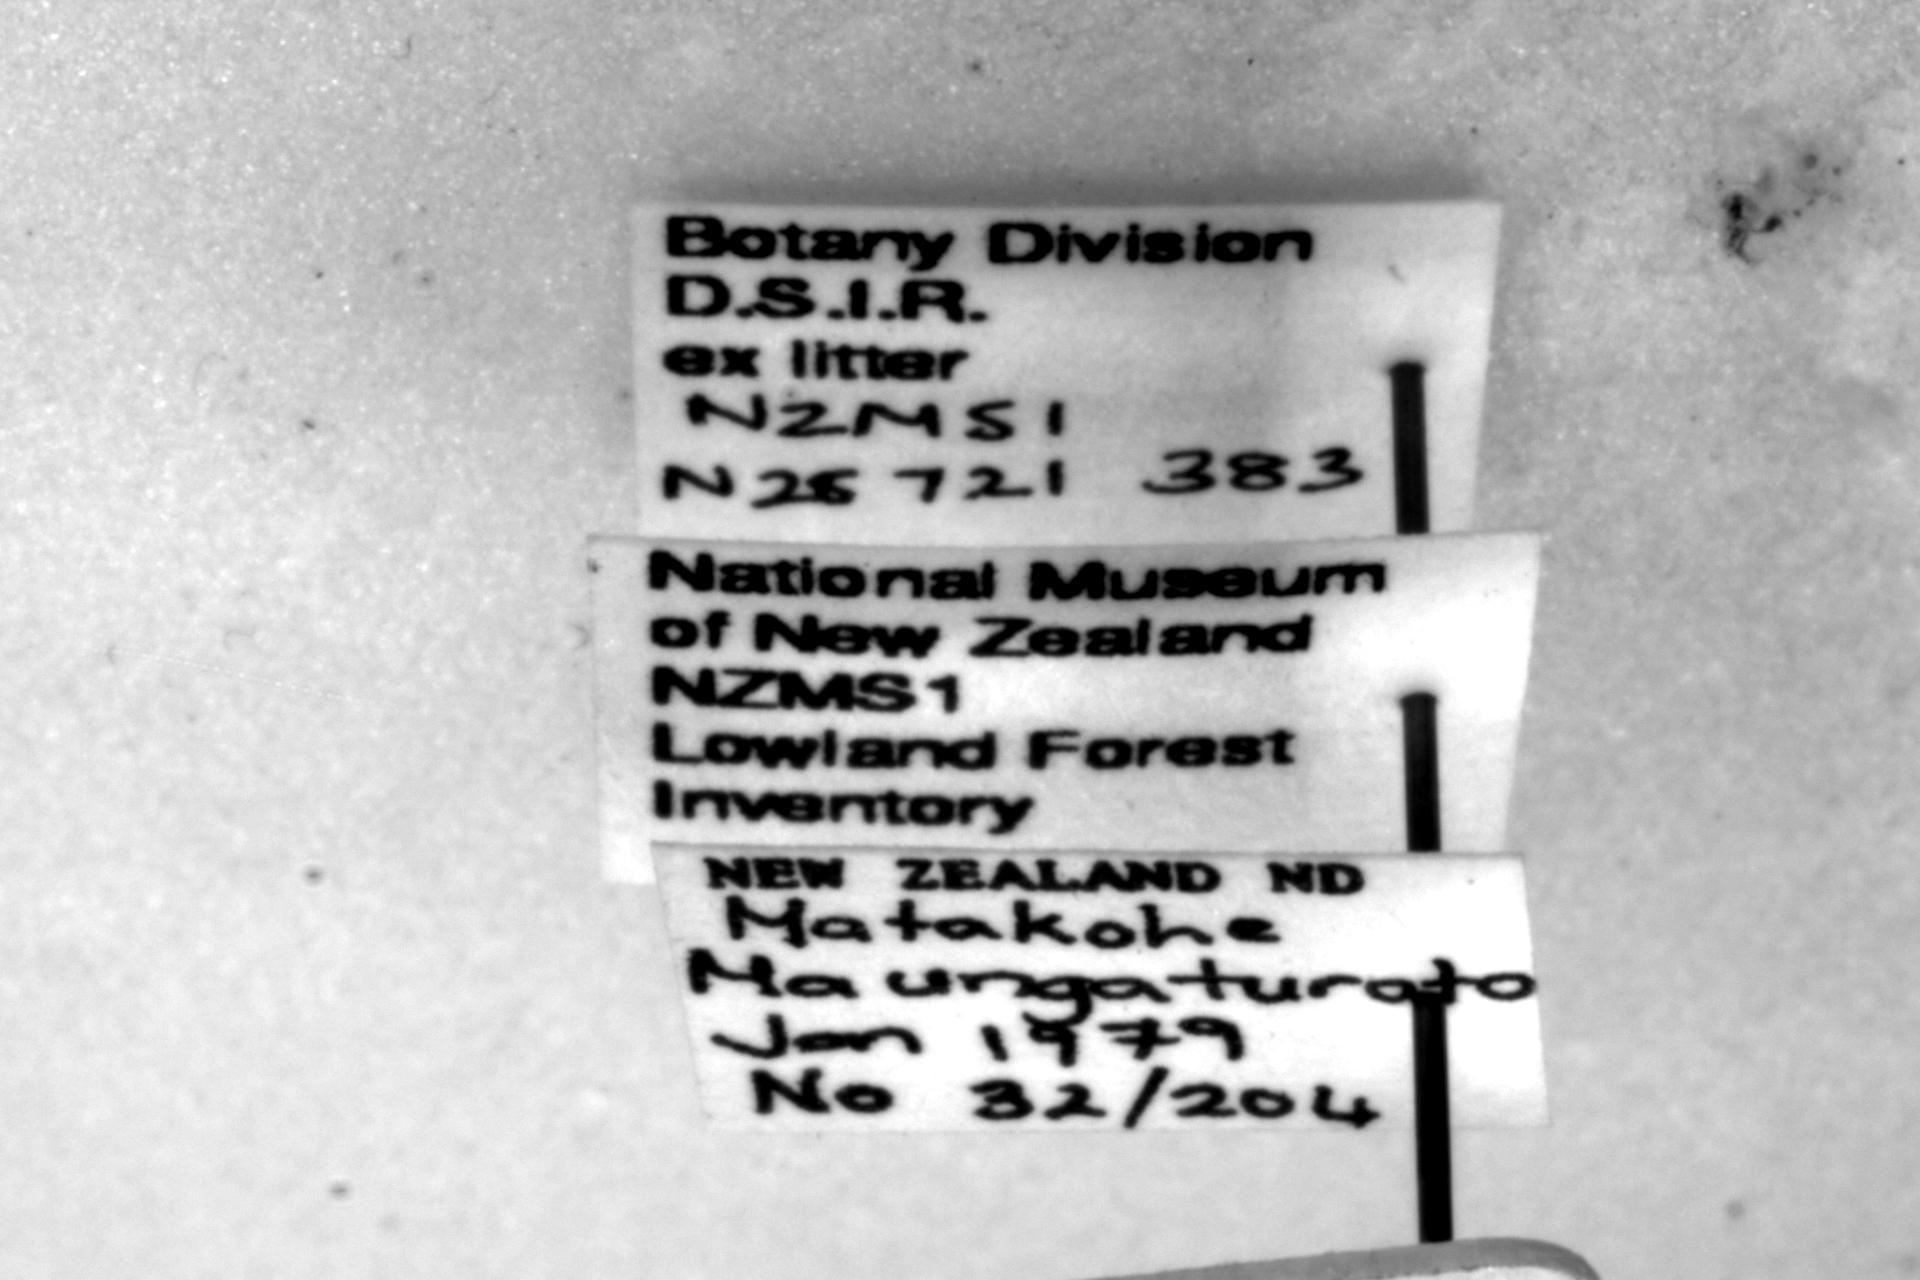 Botany Division
D.S.I.R.
ex litter
NZMS1
N28 721 383
National Museum
of New Zealand
NZMS1
Lowland Forest
Inventory
NEW ZEALAND ND
Matakohe
Maungaturoto
Jan 1979
No 32/204